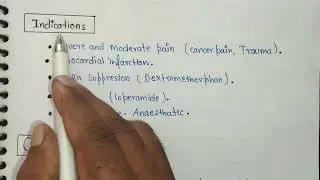 Indications
and Moderate pain (cancer pain, Trauma).
infarction.
Suppresion (Dextrometherphan)
(loperamide)
Anaesthatic.